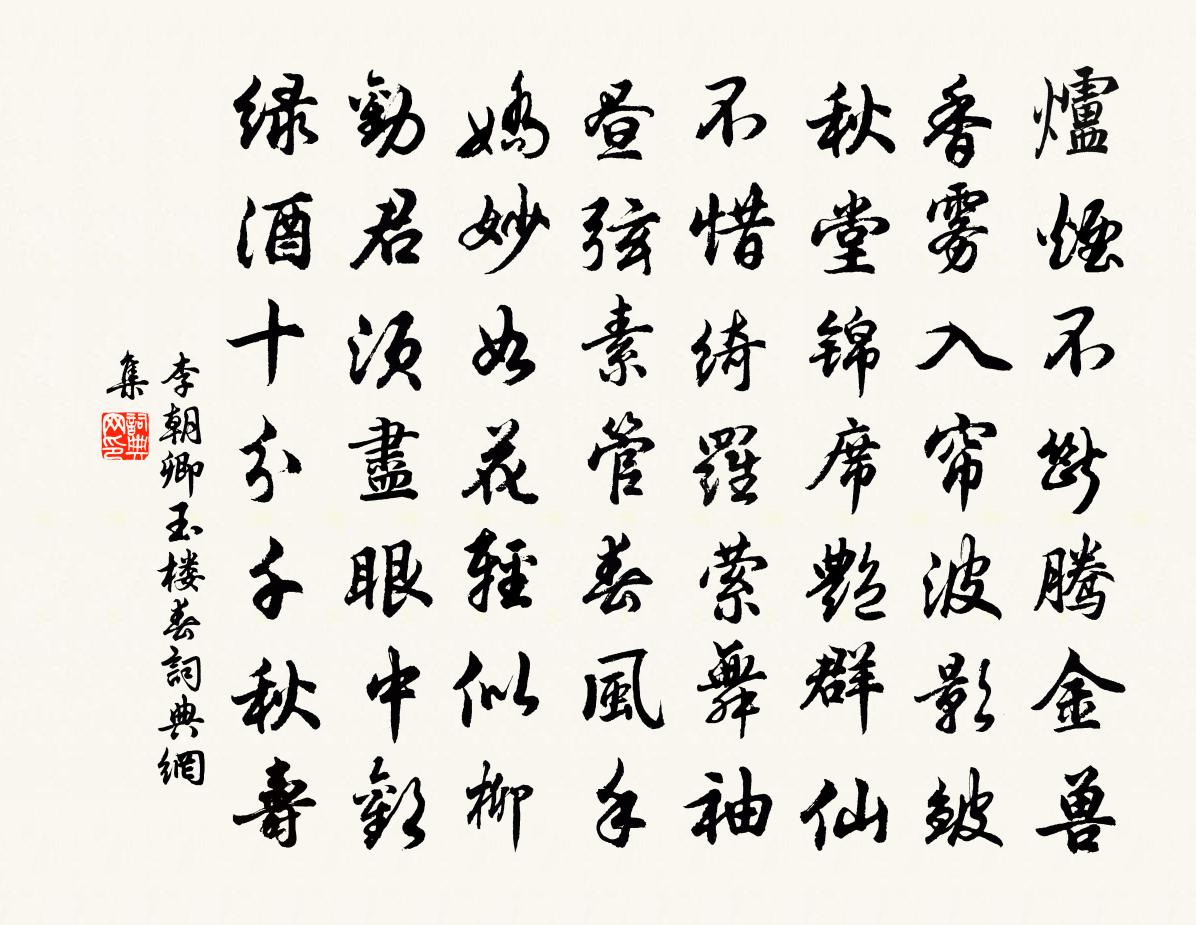 爐煙不斷騰金兽
香雾入帘波影皱
秋堂锦席艷群仙
不惜绮羅萦舞袖
昼弦素管春風手
嬌妙如花輕似柳
勸君须盡眼中歡
绿酒十分千秋壽
李朝卿玉楼春詞典網
集
詞典
网印